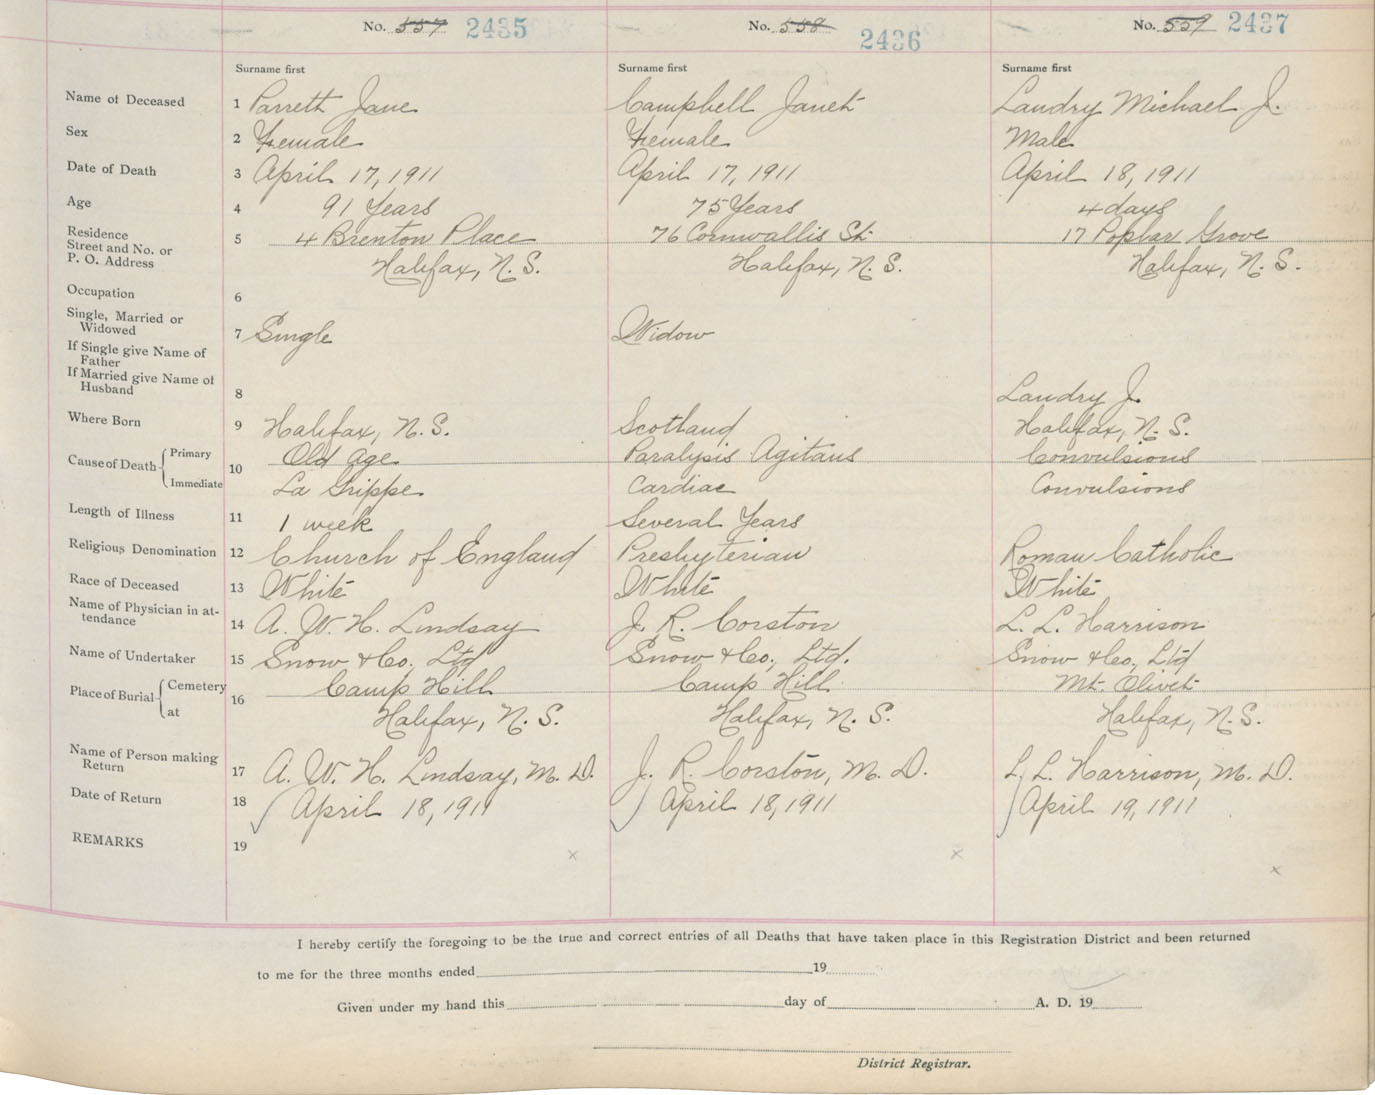 No. 557 2435 No. 558 2436 No. 559 2437
Surname first Surname first Surname first
Name of Deceased 1 Parrett Jane Campbell Janet Landry Michael J.
Sex 2 Female Female Male
Date of Death 3 April 17, 1911 April 17, 1911 April 18, 1911
Age 4 91 Years 75 Years 4 days
Residence
Street and No. or 5 4 Brenton Place 76 Cornwallis St. 17 Poplar Grove
P. O. Address Halifax, N. S. Halifax, N. S. Halifax, N. S.
Occupation 6
Single, Married or
Widowed 7 Single Widow
If Single give Name of
Father
If Married give Name of
Husband 8 Landry J.
Where Born 9 Halifax, N. S. Scotland Halifax, N. S.
Cause of Death Primary 10 Old Age Paralysis Agitans Convulsions
Immediate La Grippe Cardiac Convulsions
Length of Illness 11 1 week Several Years
Religious Denomination 12 Church of England Presbyterian Roman Catholic
Race of Deceased 13 White White White
Name of Physician in at-
tendance 14 A. W. H. Lindsay J. R. Corston L. L. Harrison
Name of Undertaker 15 Snow & Co, Ltd Snow & Co, Ltd. Snow & Co, Ltd
Place of Burial Cemetery 16 Camp Hill Camp Hill Mt. Olivet
at Halifax, N. S. Halifax, N. S. Halifax, N. S.
Name of Person making
Return 17 A. W. H. Lindsay, M. D. J. R. Corston, M. D. L. L. Harrison, M. D.
Date of Return 18 April 18, 1911 April 18, 1911 April 19, 1911
REMARKS 19
x x x
I hereby certify the foregoing to be the true and correct entries of all Deaths that have taken place in this Registration District and been returned
to me for the three months ended 19
Given under my hand this day of A. D. 19
District Registrar.